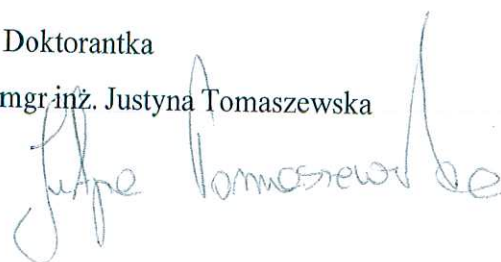 Doktorantka
mgr inż. Justyna Tomaszewska
Justyna Tomaszewska